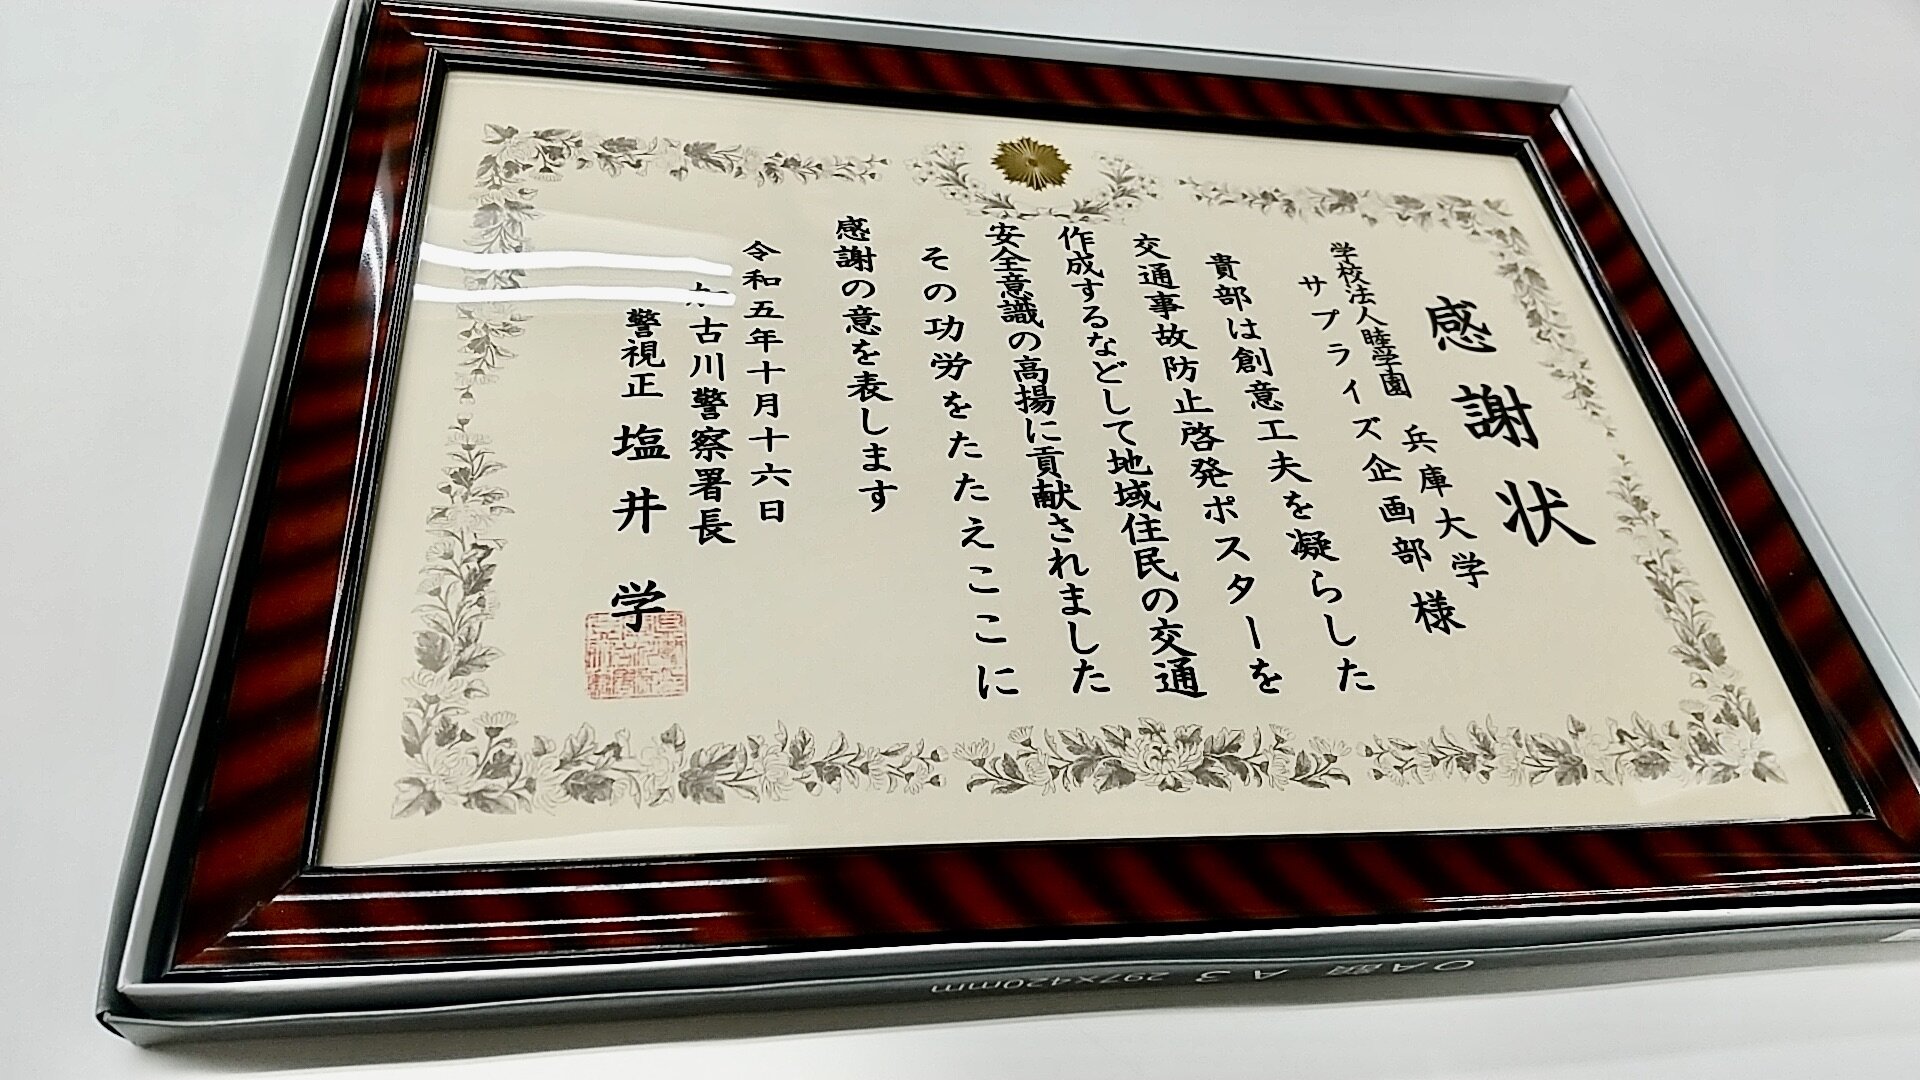 感謝状
学校法人睦学園 兵庫大学
サプライズ企画部 様
貴部は創意工夫を凝らした
交通事故防止啓発ポスターを
作成するなどして地域住民の交通
安全意識の高揚に貢献されました
その功労をたたえここに
感謝の意を表します
令和五年十月十六日
加古川警察署長
警視正 塩井 学
OA額 A3 297×420mm